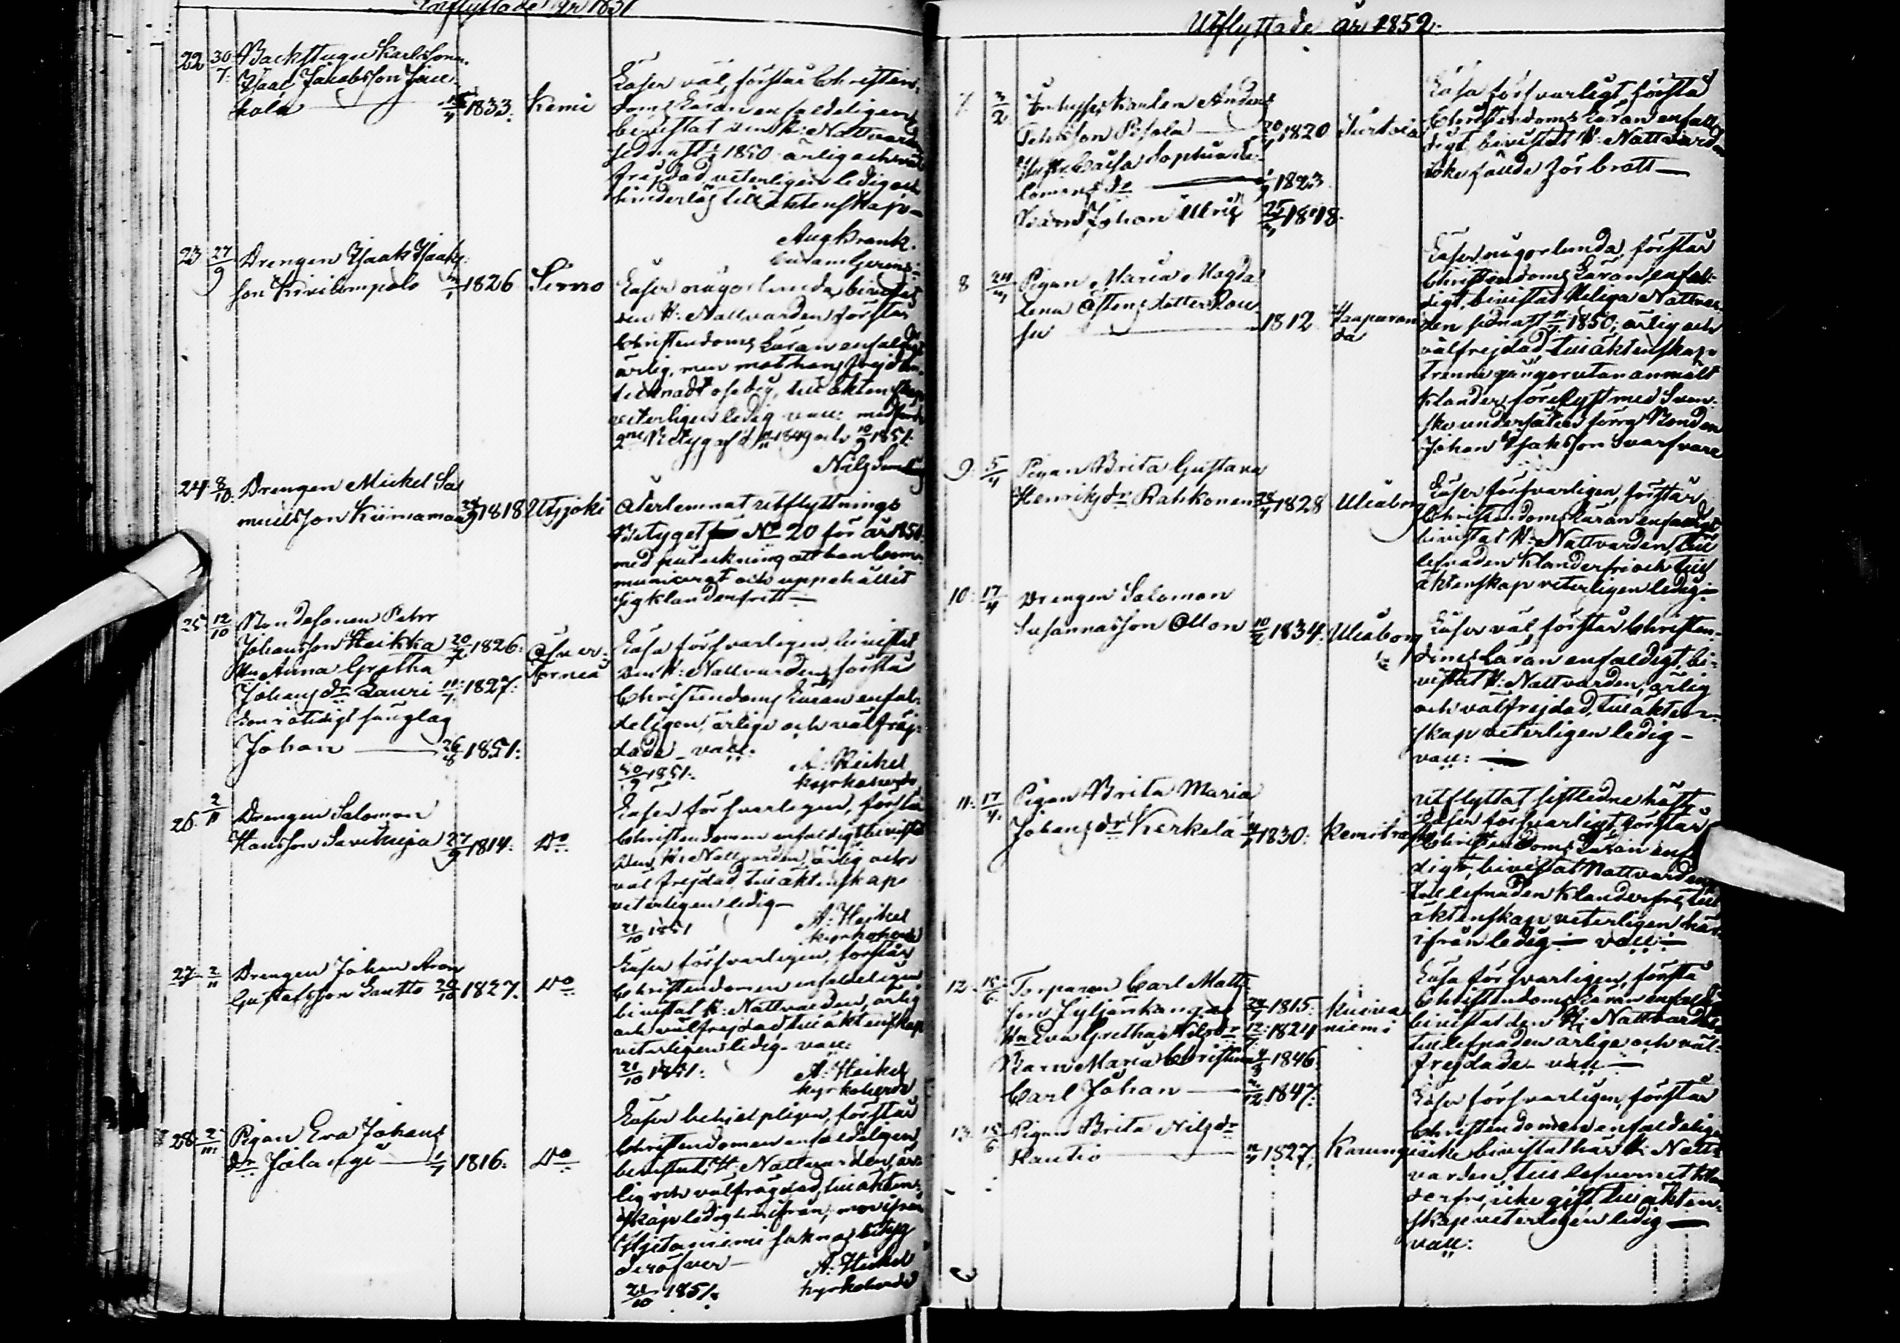 Inflyttade År 1851
22 30/7 Backstugu Karlson
Isaac Jacobsson Jau
kola 1833. Kemi
Läser väl, förstår Christen-
doms Läran enfaldeligen
bevistat den H: Nattvarden
sednast 1850 ärlig och väl
frejdad veterligen ledig och
hinderlös till äktenskap
Aug Brank.
23 27/9 Drengen Isaak Isaaks
son Kivilompolo 1826 Simo
Läser någorlunda, bevistat
den H: Nattvarden, förstår
Christendoms Läran enfaldigt
ärlig, men mot hans frejd
till äkten
veterligen ledig vacc: medförde
1849 och 10/9 1851.
24 8/10 Drengen Mickel Sa
muelsson Kiimamaa 1818 Utsjoki
Återlemnat utflyttnings
Betyget No 20 för år 1851
med påteckning att han com-
municerat och uppehållit
sig klanderfritt
25 12/10 Bondesonen Petter
Johansson Heikka 20/2 1826. Öfver
Hu Anna Gretha Torneå
Johans dr Lauri 11/7 1827.
Johan 26/8 1851.
Läsa försvarligen, bevistat
den H: Nattvarden, förstår
Christendoms Läran enfal-
deligen, ärliga och välfräj-
dade vacc:
30/9 1851. A. Heikel
kyrkoherde
26 2/11 Drengen Salomon
Hansson Savikuja 27/9 1814. Do
Läser försvarligen, förstår
Christendomen enfaldigt bevistat
den H: Nattvarden, ärlig och
välfrejdad, till äktenskap
veterligen ledig
21/10 1851 A. Heikel
kyrkoherde
27 2/11 Drengen Johan Aron
Gustafsson Lautto 1827. Do
Läser försvarligen, förstår
Christendomen enfaldeligen
bevistat H: Nattvarden, ärlig
och välfrejdad till äktenskap
veterligen ledig vacc:
21/10 1851. A. Heikel
kyrkoherde
28 2/11 Pigan Eva Johans
dr Jolangi 1816. Do
Läser behjelpligen, förstår
Christendomen enfaldeligen,
bevistat H: Nattvarden, är-
lig och välfrägdad, till äkten-
skap ledig härifrån, men ifrån
Hjetaniemi saknas betyg
derofver
21/10 1851. A. Heikel
kyrkoherde
Utflyttade år 1852.
7 3/2 Inhyses karlen Anders
1820
Hu Caisa Sophia Sa-
lomons dr 1823
Barn Johan Ulric 1848.
Läsa försvarligt, förstå
Christendoms Läran enfal-
digt, bevistat H: Nattvarden
icke fällde för brott
8 24/3 Pigan Maria Magda
lena Östens dotter Rou
su 1812 Haparan
da
Läser någorlunda, förstår
Christendoms Läran enfal-
digt, bevistat Heliga Nattvar-
den sednast 1850, ärlig och
välfrejdad till äktenskap
trenne gånger utan anmält
klander förelyst med Sven-
ske undersåten förra Bonden
Johan Isaksson Svarfvare
9. 5/4 Pigan Brita Gustava
Henriks dr Rahkonen 1828 Uleåborg
Läser försvarligen, förstår
Christendoms Läran enfaldigt
bevistat H: Nattvarden, till
lefnaden klanderfri och till
äktenskap veterligen ledig
10. 17/4 Drengen Salomon
Susannasson Ollon 10/2 1834. Uleåborg
Läser väl, förstår Christen-
doms Läran enfaldigt, bi-
vistat H: Nattvarden, ärlig
och välfrejdad, till äkten-
skap veterligen ledig
vacc:
11. 17/4. Pigan Brita Maria
Johans dr Kerkelä 1830. Kemiträsk
Utflyttat sistledne höst
Läser försvarligt, förstår
Christendoms Läran enfal
digt, bevistat Nattvarden
till lefnaden klanderfri, till
äktenskap veterligen här
ifrån ledig vacc:
12. 15/6 Torparen Carl Matts
son Lyljankangas 1815. Kuivaniemi
Hu Eva Gretha Nils dr 1824
Barn Maria Christina 1846.
Carl Johan 1847.
Läsa försvarligen, förstå
Christendoms Läran enfaldigt
bevistat den H: Nattvarden
till lefnaden ärliga och väl-
frejdade vacc:
13. 15/6 Pigan Brita Nils dr
Hautio 1827. Karungi
Läser försvarligen, förstår
Christendomen enfaldeligen
icke bevistat här H: Natt-
varden, till lefvernet klan
derfri, icke gift, till äkten-
skap veterligen ledig
vacc: